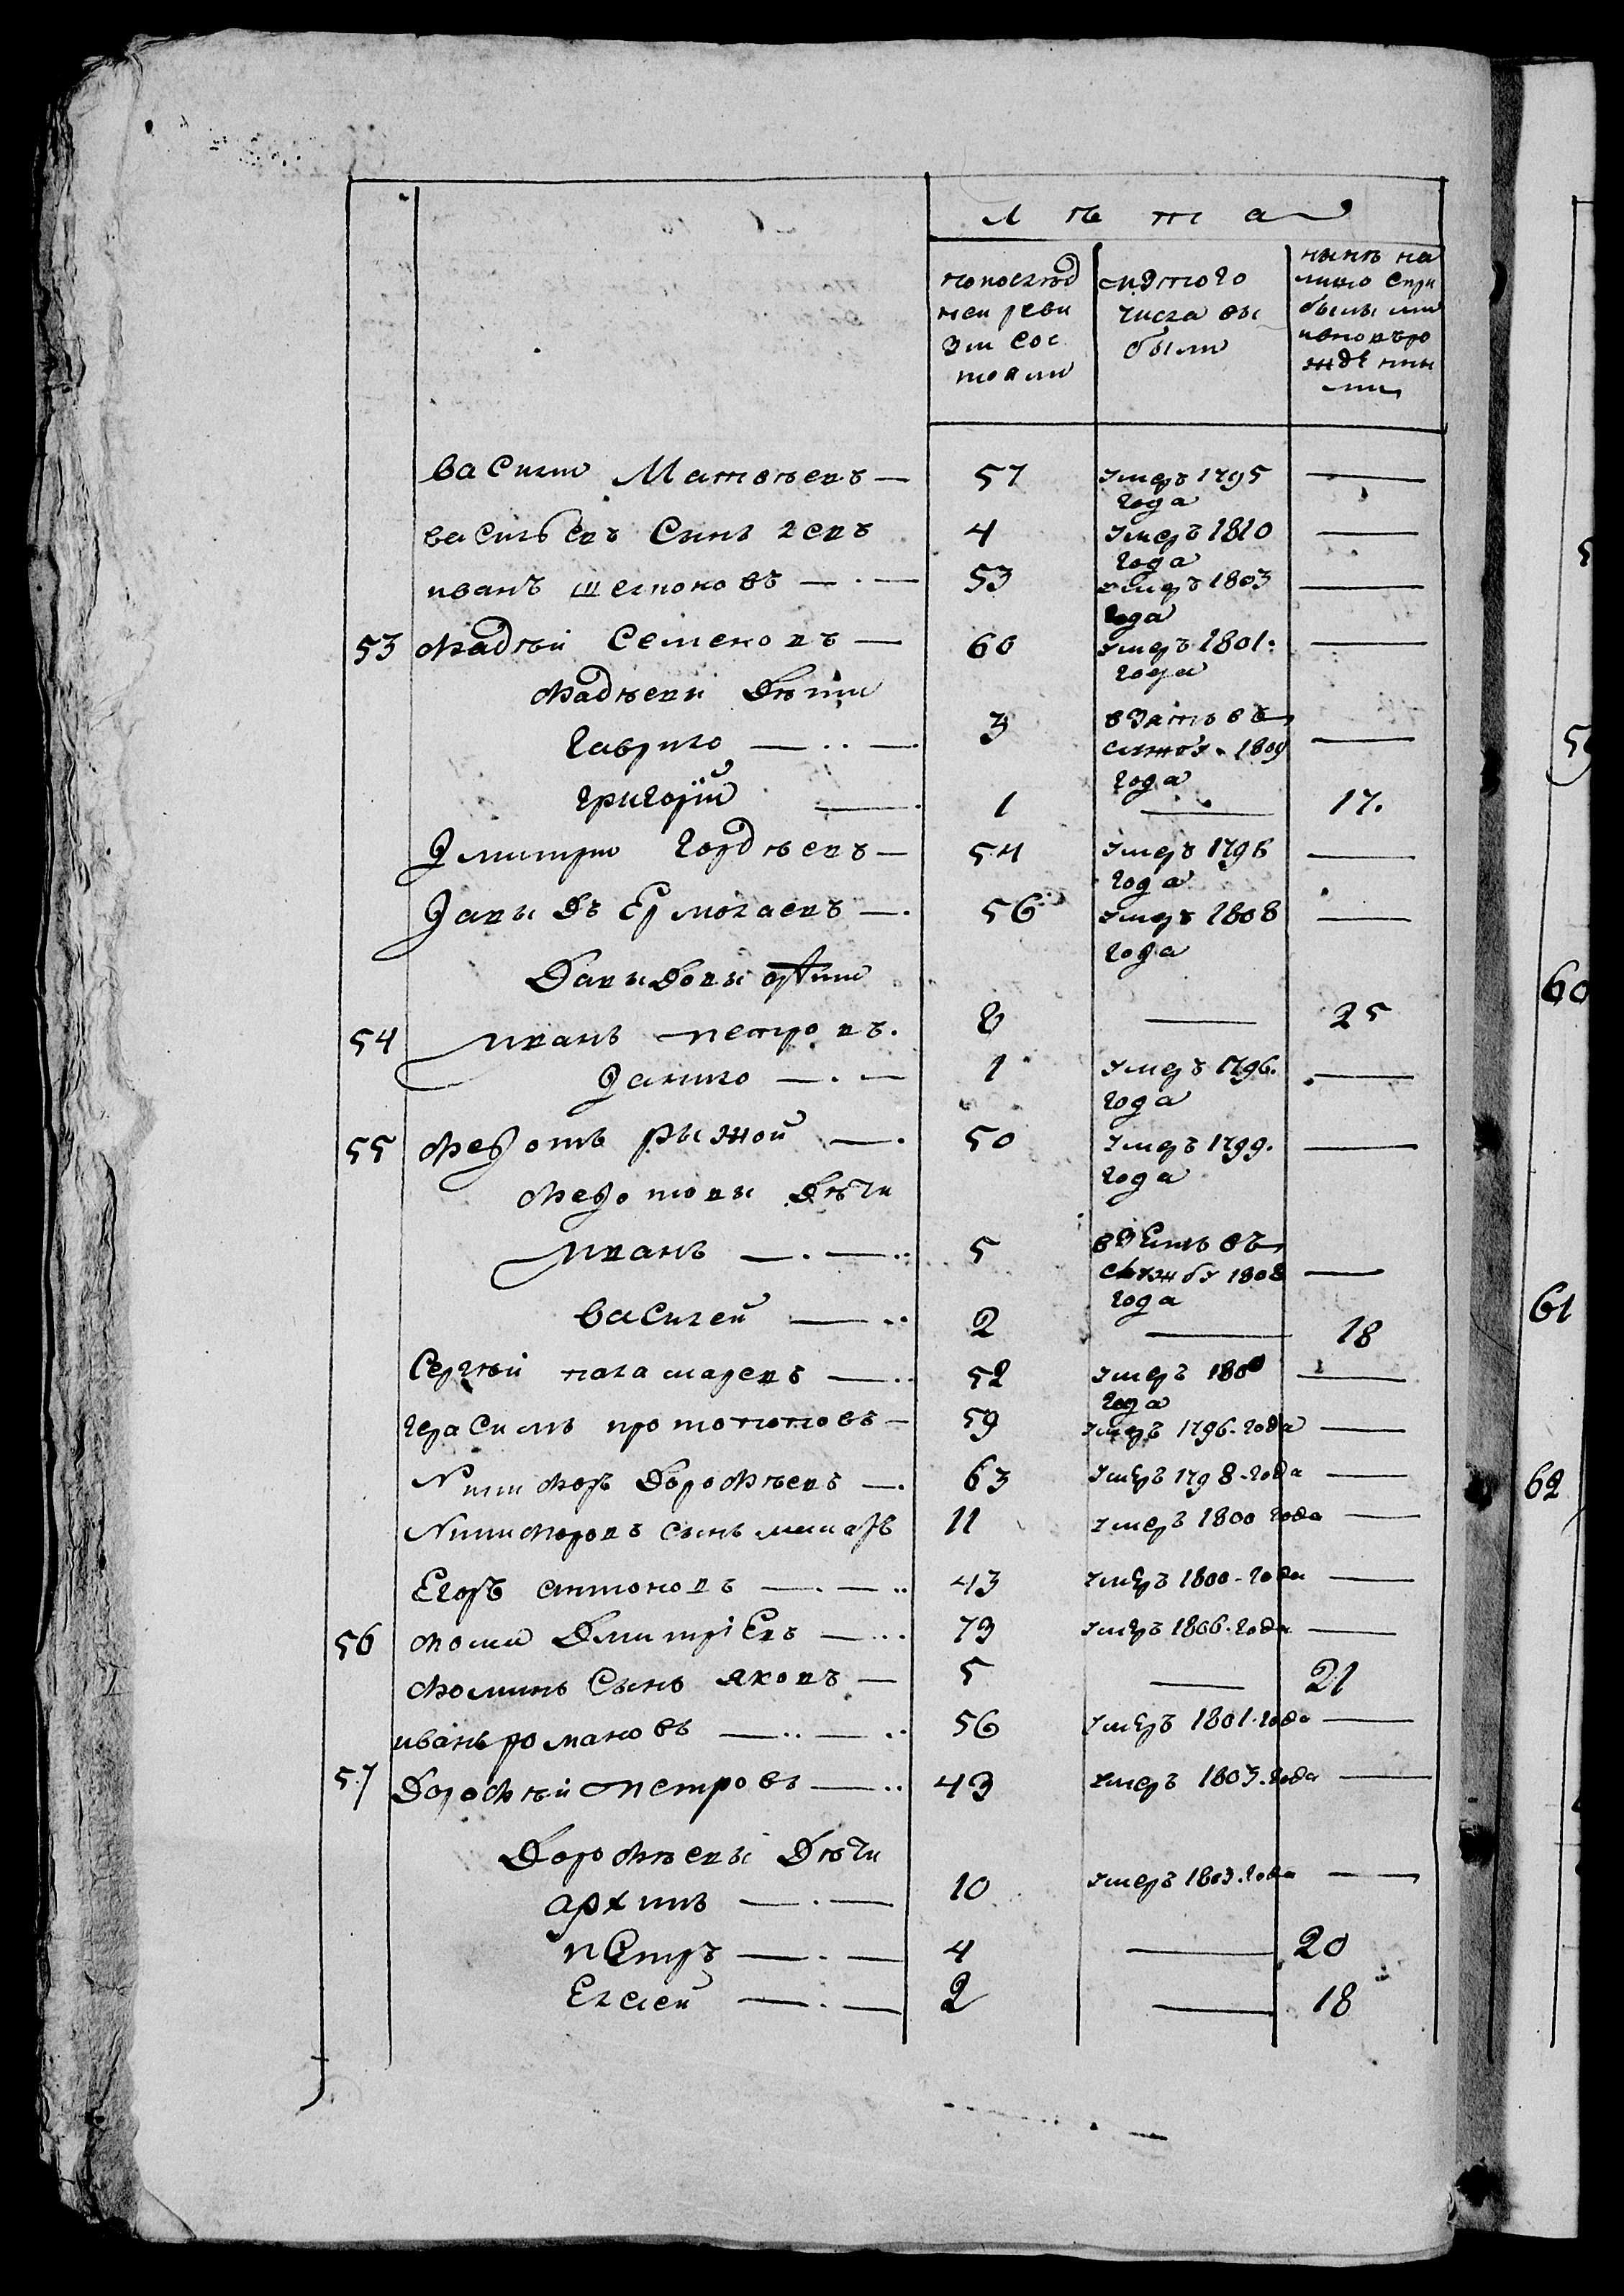 лѣта
попослѣд
ней реви
зіи сос
тояли
изтого
числа вы
были
нынѣ на
лицо спри
былыми
ивновъро
жденны
ми
василій Матвѣевъ — 57 умеръ 1795 —
года
васильевъ сынъ левъ 4 умеръ 1810 —
года
иванъ шелпоновъ — 53 умеръ 1803 —
года
53 Фадѣй семеновъ — 60 умеръ 1801. —
года
Фадѣевы дѣти
гаврило — 3 взятъ въ —
службу 1809
года
григорій — 1 — 17.
Дмитріи гордѣевъ — 54 умеръ 1796 —
года
Давыдъ Ермолаевъ — 56 умеръ 1808 —
года
Давыдовы дѣти
54 иванъ петровъ. 8 — 25
Данило — 1 умеръ 1796. —
года
55 Федотъ рыжой — 50 умеръ 1799. —
года
Федотовы дѣти
иванъ — 5 взетъ въ
службу 1808 —
года
василей — 2 — 18
сергѣй — 52 умеръ 1800 —
года
герасимъ протопоповъ — 59 умеръ 1796. года —
Никифоръ дорофѣевъ — 63 умеръ 1798. года —
Никифоровъ сынъ 11 умеръ 1800 года —
Егоръ антоновъ — 43 умеръ 1800. года —
56 Фома Дмитріевъ — 73 умеръ 1806. года —
Фоминъ сынъ яковъ — 5 — 21
иванъ романовъ — 56 умеръ 1801. года —
57 Дорофѣй петровъ — 43 умеръ 1803. года —
Дорофѣевы дѣти
архипъ — 10 умеръ 1803. года —
петръ — 4 — 20
Елсей — 2 — 18
60
61
62